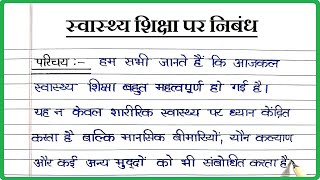 स्वास्थ्य शिक्षा पर निबंध
परिचय :- हम सभी जानते हैं कि आजकल
स्वास्थ्य शिक्षा बहुत महत्वपूर्ण हो गई है।
यह न केवल शारीरिक स्वास्थ्य पर ध्यान केंद्रित
करता है बल्कि मानसिक बीमारियों, यौन कल्याण
और कई अन्य मुद्दों को भी संबोधित करता है